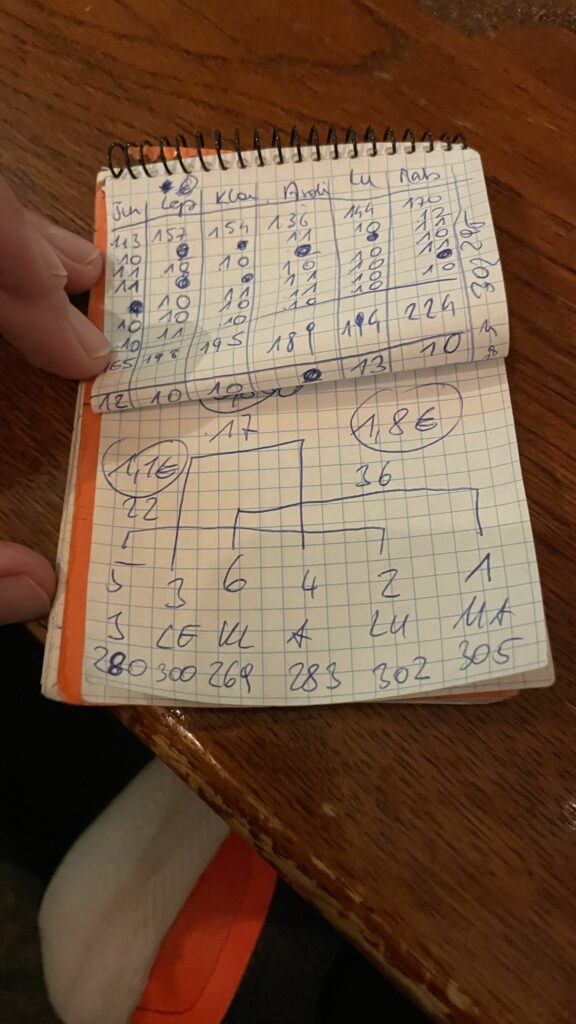 Jun Lep Klau Andi Lu Mab
143 157 154 136 144 170
10 11 10 12
11 10 10 10
11 10 10 11
10 11 11 10 10
10 10 10 10
10 11
165 198 195 189 194 224
12 10 10 13 10
17 1,8€
1,1€ 36
22
5 3 6 4 2 1
J LE KL A LU MA
280 300 269 283 302 305